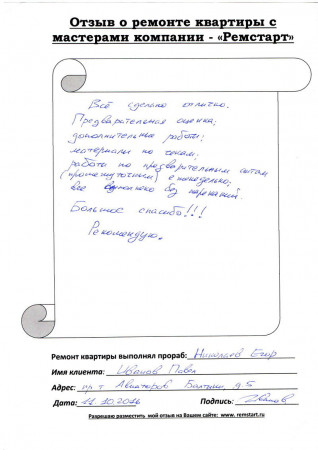 Отзыв о ремонте квартиры с
мастерами компании - «Ремстарт»
Всё сделано отлично.
Предварительная оценка;
дополнительные работы;
материалы по чекам;
работа по предварительным сметам
(промежуточным) еженедельно;
все выполнено без нареканий.
Большое спасибо!!!
Рекомендую.
Ремонт квартиры выполнял прораб: Николаев Егор
Имя клиента: Иванов Павел
Адрес: пр-т Авиаторов Балтики, д.5
Дата: 11.10.2016 Подпись:
Разрешаю разместить мой отзыв на Вашем сайте: www. remstart.ru